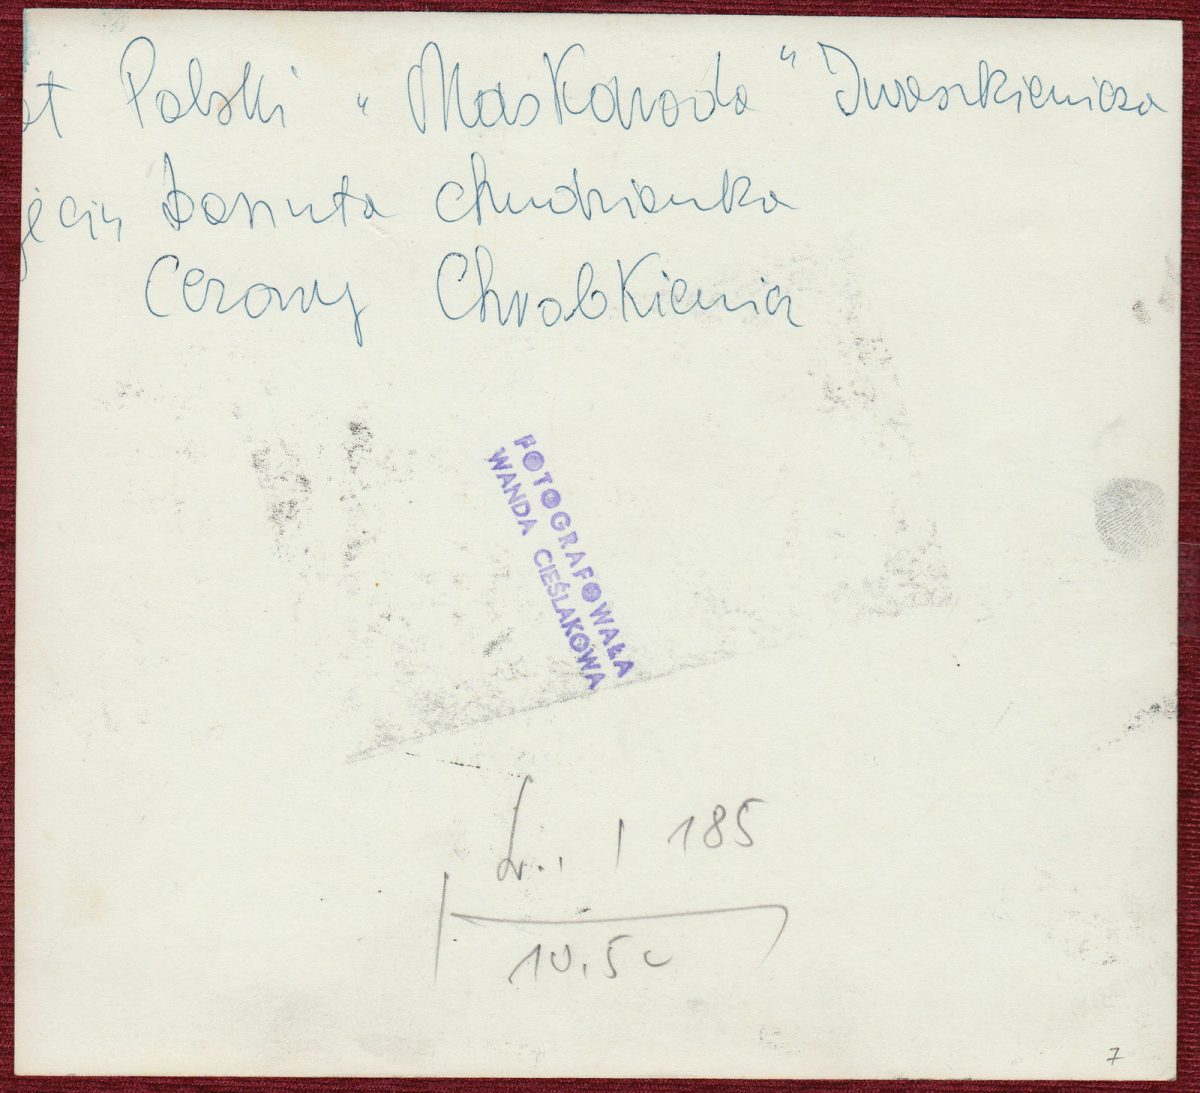 at Polski "Maskarada" Iwaszkiewicza
jęciu Danuta Chudzianka
Cezary Chrobkiewicz
FOTOGRAFOWAŁA
WANDA CIEŚLAKOWA
185
10,5c
7